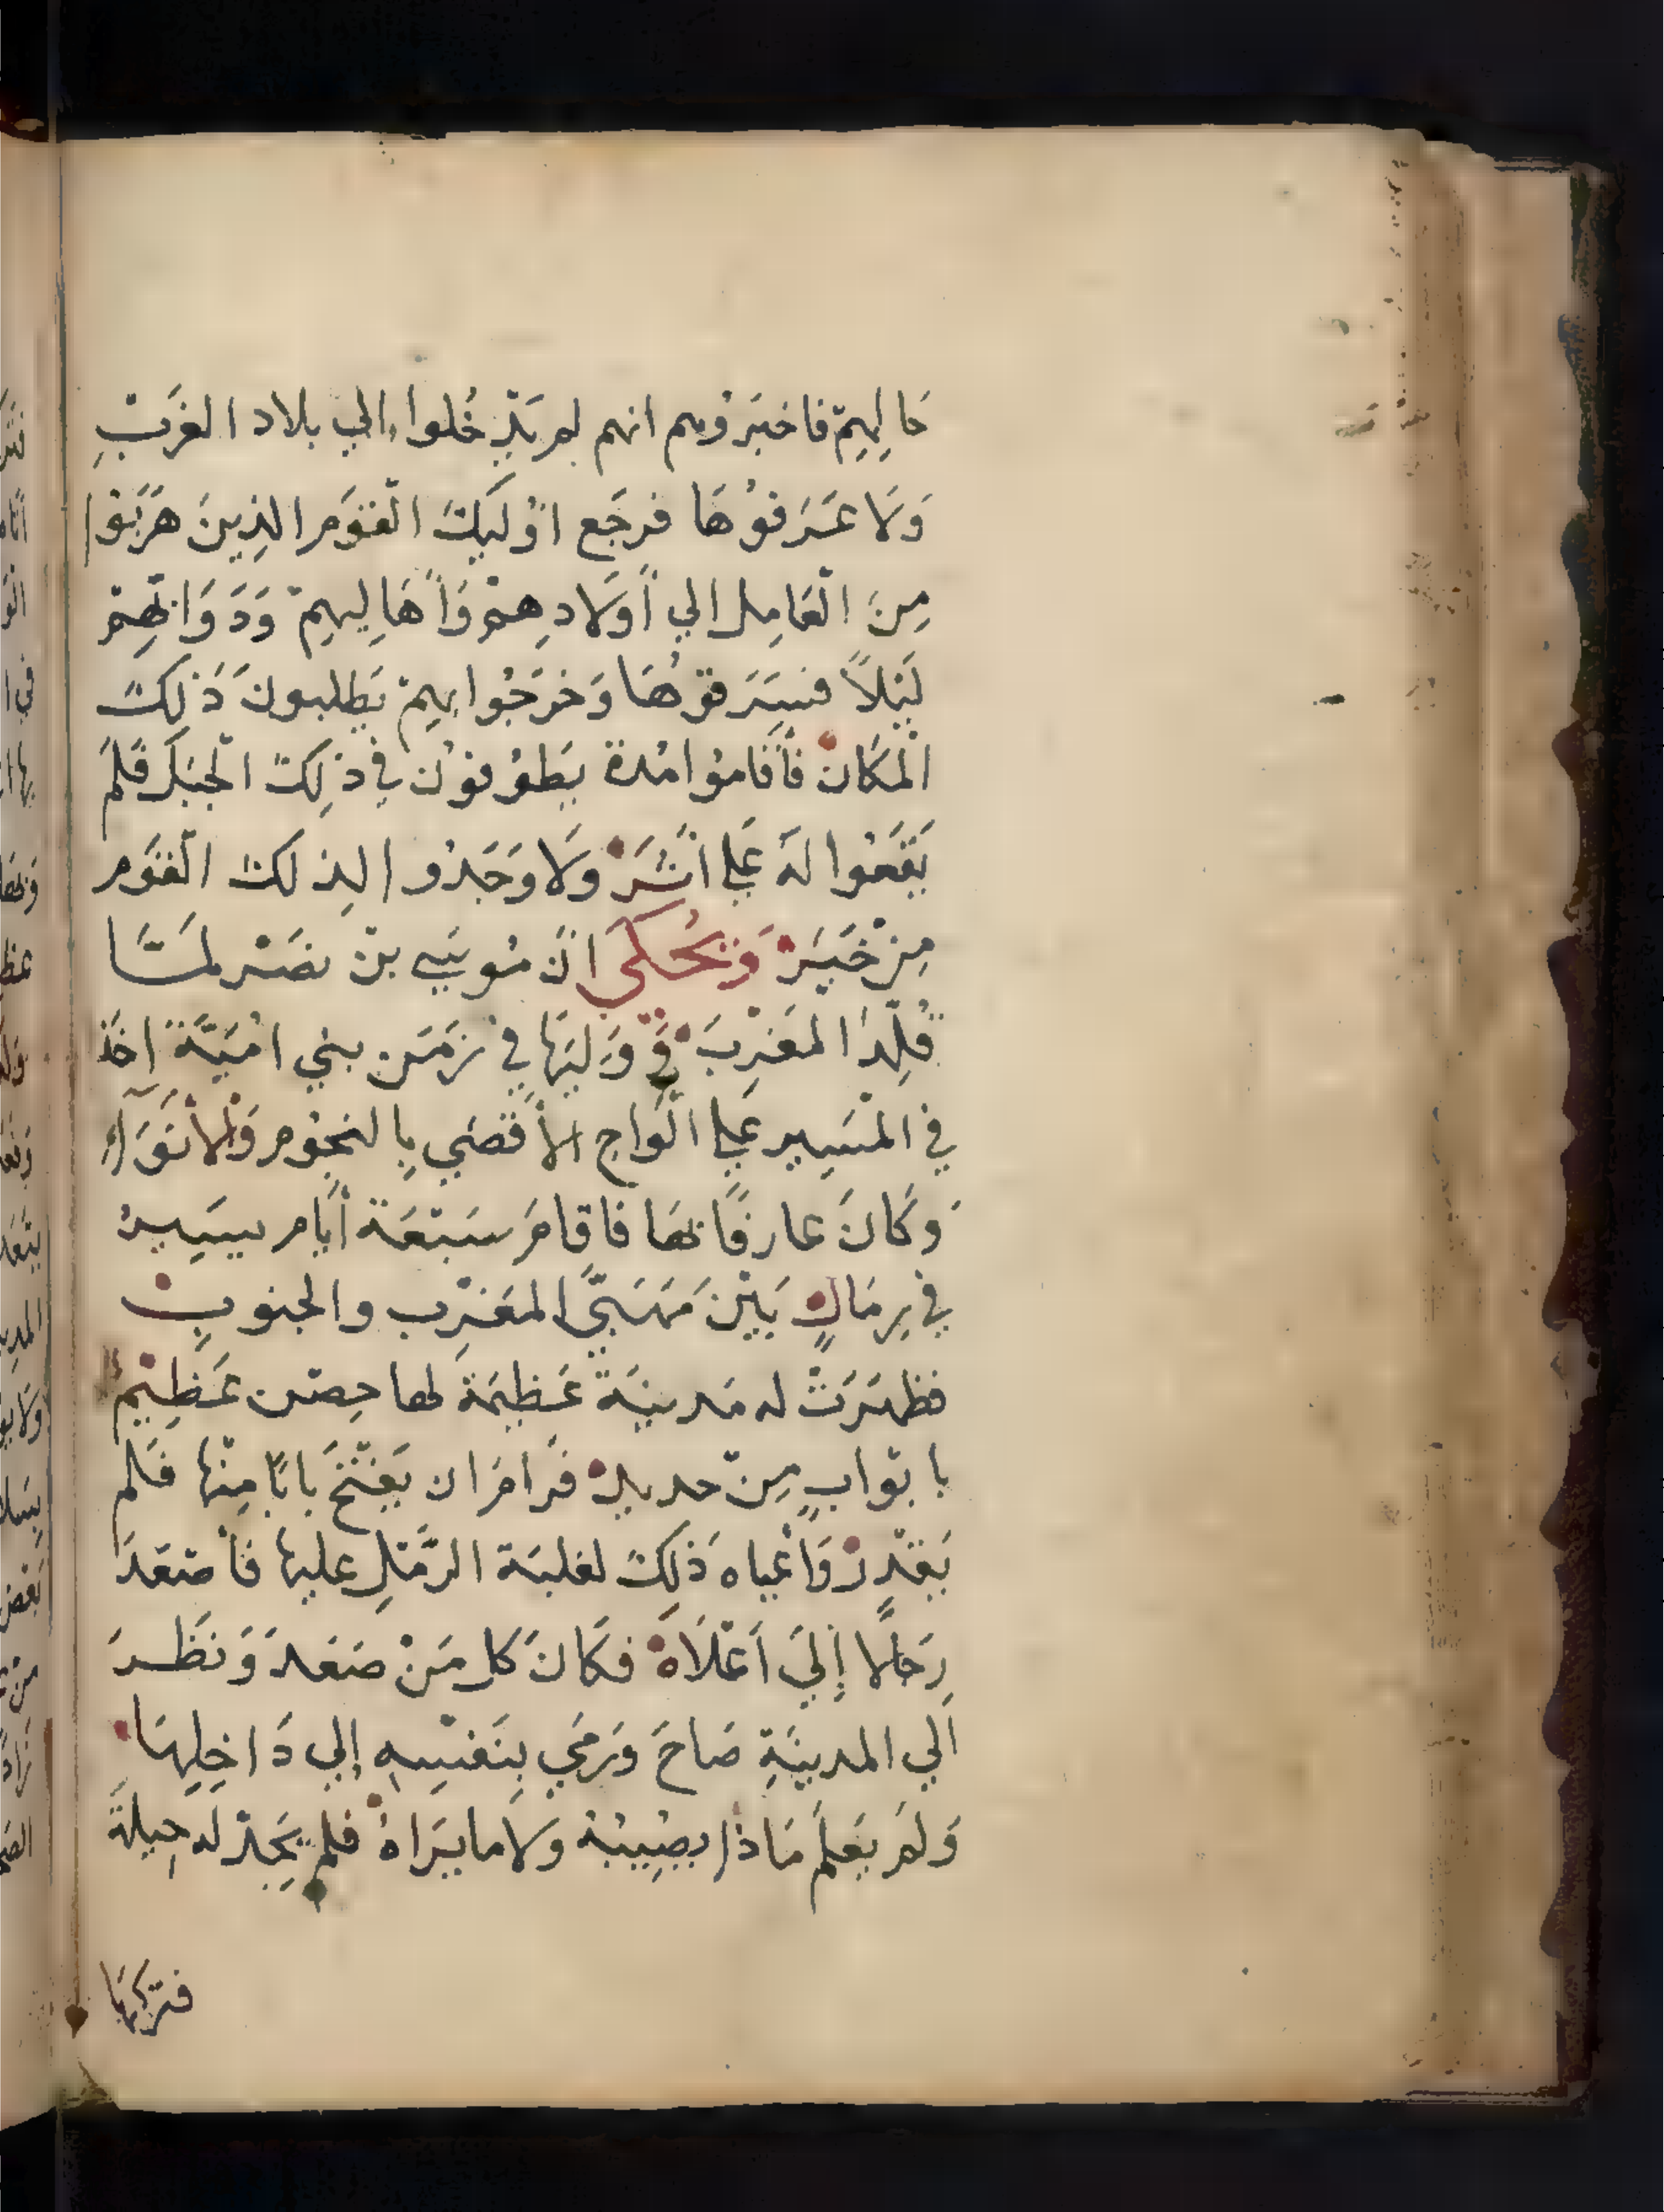 حَالِهِمْ فاخبَرُوهم انهم لم يَدْخُلوا الي بلاد الغَرْبِ
وَلَا عَرَفُوْهَا فرجَع اوُلَيِكَ الْقَوَم الذِينَ هَرَبَوُا
مِنَ الْعَامِل الي أَوَلَادِهِمْ وَأَهَالِيهِمْ وَدَوَابهِمْ
لَيْلاً فسَرَقوْهُا وَخرَجُوا بهِمْ يَطلبونَ ذَلِكَ
الْمَكَان فَأَقَاموُا مُدة يَطوُفوْن في ذلِكَ الْجبَل فَلَمْ
يَقَعُوا لَهُ عَلي اثَرْ وَلَا وَجَدُوا لِذلكَ الْقَوَم
مِنْ خَبَرْ وَيُحْكي انَ مُوسَي بنْ نصَر لمَّا
قُلِّدَ الْمَغْرِبَ وَوَلِيَهَا في زَمَن بني امُيَّة اخَذ
في الْمَسِير عَلي الْوَاح الأَقصَي بِالنجوُم وَالْانوَاء
وَكَانَ عارفًا بهَا فاقامَ سَبْعَة أَيام يسَير
في رِمَالٍ بَيْنَ مَهَبَّيَ الْمَغرِب والجنوبِ
فظهَرَتْ له مَدينَة عَظيمَة لها حِصن عَظِيْم
بابوْابٍ مِنْ حديد فَرامَ ان يَفْتَحَ بابًا مِنْهَا فَلم
يَقْدِرْ وَأَعْياه ذَلِكَ لغلبَة الرَّمْلِ عليها فأَصْعَدَ
رِجَالًا إِلَي اَعْلَاهُ فكَانَ كل مَنْ صَعَدَ وَنَظَرَ
الَي المدينَةِ صَاحَ وَرمَي بِنَفْسِهِ إلي دَاخِلِهَا
وَلمَ يَعْلَمْ مَاذا يصُيِبُهُ ولا ما يَرَاهُ فلم يَجِدْ لهِ حِيلَةً
فترَكهَا